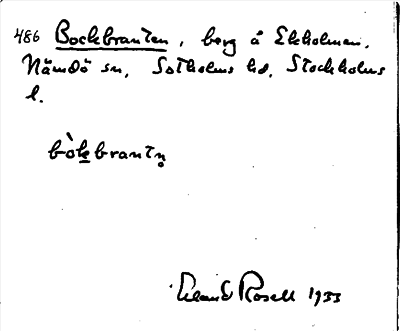 486 Bockbranten, berg å Ekholmen,
Nämdö sn, Sotholms hd, Stockholms
l.
bòkbrantn̥
Rosell 1933